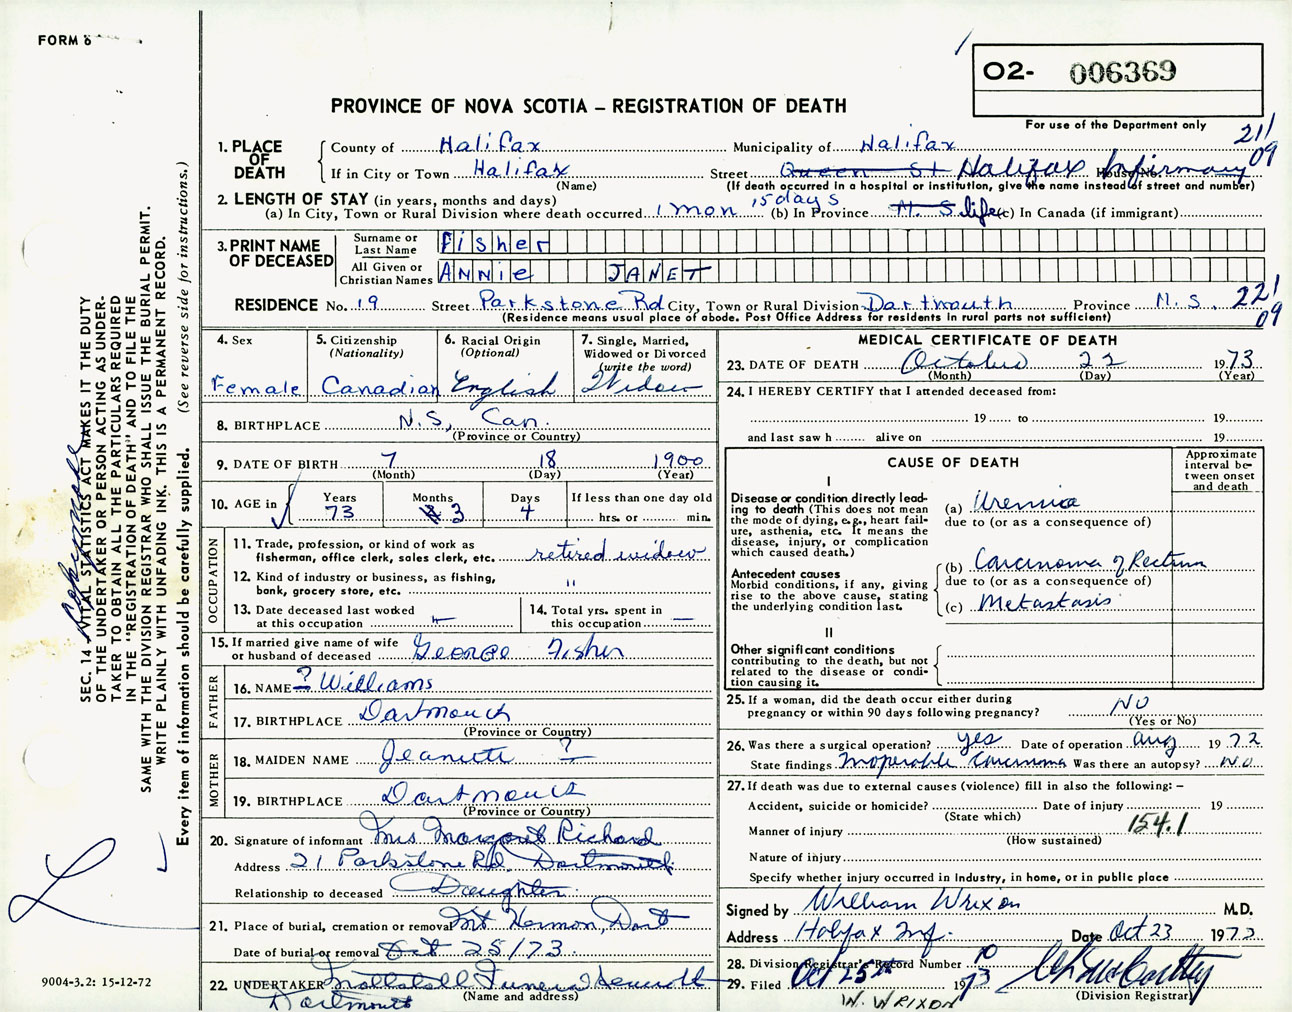 FORM 8
O2- 006369
PROVINCE OF NOVA SCOTIA – REGISTRATION OF DEATH
For use of the Department only
211
09
1. PLACE OF DEATH
County of Halifax Municipality of Halifax
If in City or Town Halifax Street Queen St Halifax Infirmary House No.
(Name) (If death occurred in a hospital or institution, give the name instead of street and number)
2. LENGTH OF STAY (in years, months and days)
(a) In City, Town or Rural Division where death occurred 1 mon 15 days (b) In Province N. S. life (c) In Canada (if immigrant)
3. PRINT NAME OF DECEASED
Surname or Last Name Fisher
All Given or Christian Names ANNie JANET
RESIDENCE No. 19 Street Parkstone Rd City, Town or Rural Division Dartmouth Province N. S. 221
09
(Residence means usual place of abode. Post Office Address for residents in rural parts not sufficient)
4. Sex Female
5. Citizenship (Nationality) Canadian
6. Racial Origin (Optional) English
7. Single, Married, Widowed or Divorced (write the word) Widow
8. BIRTHPLACE N.S, Can.
(Province or Country)
9. DATE OF BIRTH 7 18 1900
(Month) (Day) (Year)
10. AGE in Years 73 Months 3 Days 4 If less than one day old hrs. or min.
OCCUPATION
11. Trade, profession, or kind of work as fisherman, office clerk, sales clerk, etc. retired widow
12. Kind of industry or business, as fishing, bank, grocery store, etc. "
13. Date deceased last worked at this occupation
14. Total yrs. spent in this occupation —
15. If married give name of wife or husband of deceased George Fisher
FATHER
16. NAME ? Williams
17. BIRTHPLACE Dartmouth
(Province or Country)
MOTHER
18. MAIDEN NAME Jeanette ?
19. BIRTHPLACE Dartmouth
(Province or Country)
20. Signature of informant Mrs Margaret Richard
Address 21 Parkstone Rd. Dartmouth
Relationship to deceased Daughter
21. Place of burial, cremation or removal Mt Hermon, Dart
Date of burial or removal Oct 25/73
22. UNDERTAKER Funeral
Dartmouth (Name and address)
MEDICAL CERTIFICATE OF DEATH
23. DATE OF DEATH October 22 1973
(Month) (Day) (Year)
24. I HEREBY CERTIFY that I attended deceased from:
19 to 19
and last saw h alive on 19
CAUSE OF DEATH
Approximate interval between onset and death
I
Disease or condition directly leading to death (This does not mean the mode of dying, e.g., heart failure, asthenia, etc. It means the disease, injury, or complication which caused death.)
(a) Uremia
due to (or as a consequence of)
Antecedent causes
Morbid conditions, if any, giving rise to the above cause, stating the underlying condition last.
(b) Carcinoma of Rectum
due to (or as a consequence of)
(c) Metastasis
II
Other significant conditions contributing to the death, but not related to the disease or condition causing it.
25. If a woman, did the death occur either during pregnancy or within 90 days following pregnancy? NO
(Yes or No)
26. Was there a surgical operation? yes Date of operation Aug 1972
State findings Inoperable Carcinoma Was there an autopsy? NO
27. If death was due to external causes (violence) fill in also the following: –
Accident, suicide or homicide? Date of injury 19
(State which)
Manner of injury 154.1
(How sustained)
Nature of injury
Specify whether injury occurred in industry, in home, or in public place
Signed by William Wrixon M.D.
Address Halifax Inf. Date Oct 23 1973
28. Division Registrar's Record Number 10
29. Filed Oct 25th 1973
(Division Registrar)
W. WRIXON
SEC. 14 – VITAL STATISTICS ACT MAKES IT THE DUTY
OF THE UNDERTAKER OR PERSON ACTING AS UNDERTAKER
TO OBTAIN ALL THE PARTICULARS REQUIRED
IN THE "REGISTRATION OF DEATH" AND TO FILE THE
SAME WITH THE DIVISION REGISTRAR WHO SHALL ISSUE THE BURIAL PERMIT.
WRITE PLAINLY WITH UNFADING INK. THIS IS A PERMANENT RECORD.
Every item of information should be carefully supplied. (See reverse side for instructions.)
9004-3.2: 15-12-72